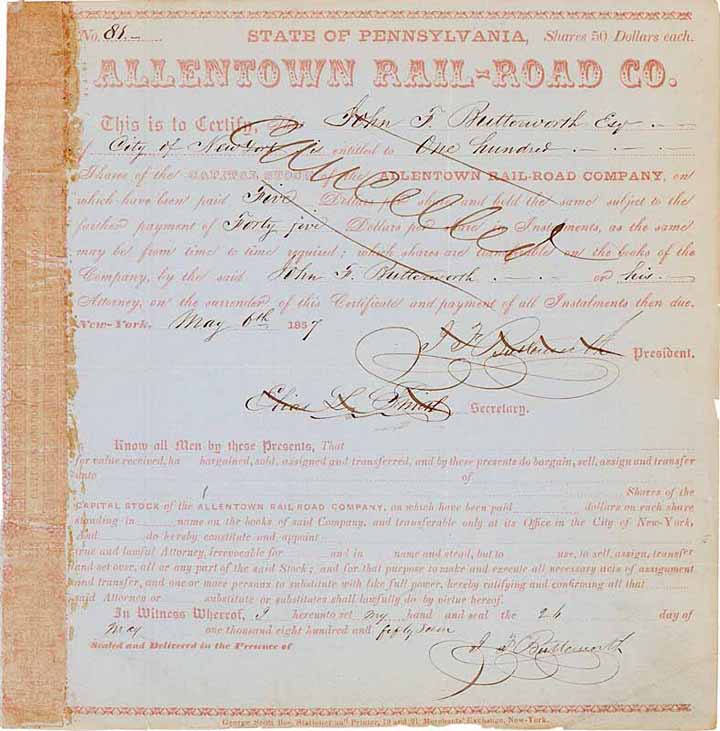 No. 81. STATE OF PENNSYLVANIA, Shares 50 Dollars each.
ALLENTOWN RAIL-ROAD CO.
This is to Certify, John F. Butterworth Esq
of City of New York is entitled to One hundred
Shares of the CAPITAL STOCK of the ALLENTOWN RAIL-ROAD COMPANY, on
which have been paid Five Dollars per share and held the same subject to the
further payment of Forty five Dollars per share in Instalments, as the same
may be from time to time required; which shares are transferable on the books of the
Company, by the said John F. Butterworth or his
Attorney, on the surrender of this Certificate and payment of all Instalments then due.
Cancelled
New-York. May 6th 1857
J F Butterworth President.
Secretary.
Know all Men by these Presents, That
for value received, ha bargained, sold, assigned and transferred, and by these presents do bargain, sell, assign and transfer
unto of
Shares of the
CAPITAL STOCK of the ALLENTOWN RAIL ROAD COMPANY, on which have been paid dollars on each share
standing in name on the books of said Company, and transferable only at its Office in the City of New-York,
And do hereby constitute and appoint
true and lawful Attorney, irrevocable for and in name and stead, but to use, to sell, assign, transfer
and set over, all or any part of the said Stock; and for that purpose to make and execute all necessary acts of assignment
and transfer, and one or more persons to substitute with like full power, hereby ratifying and confirming all that
said Attorney or substitute or substitutes shall lawfully do by virtue hereof.
In Witness Whereof, I hereunto set my hand and seal the 26 day of
May one thousand eight hundred and fifty seven
Sealed and Delivered in the Presence of J F Butterworth
George Scott Roe, Stationer and Printer, 19 and 21, Merchants' Exchange, New-York.